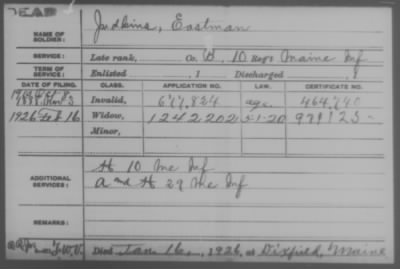 DEAD
NAME OF SOLDIER: Judkins, Eastman
SERVICE: Late rank, Co. D, 10 Reg't Maine Inf
TERM OF SERVICE: Enlisted , 1 Discharged , 1
DATE OF FILING. CLASS. APPLICATION NO. LAW. CERTIFICATE NO.
Invalid, 677,824 age. 464,740
1926 Feb 16 Widow, 1242202 5-1-20 981125-
Minor,
ADDITIONAL SERVICES: H 10 Me Inf
A and H 29 Me Inf
REMARKS:
Died Jan 16, 1926, at Dixfield, Maine